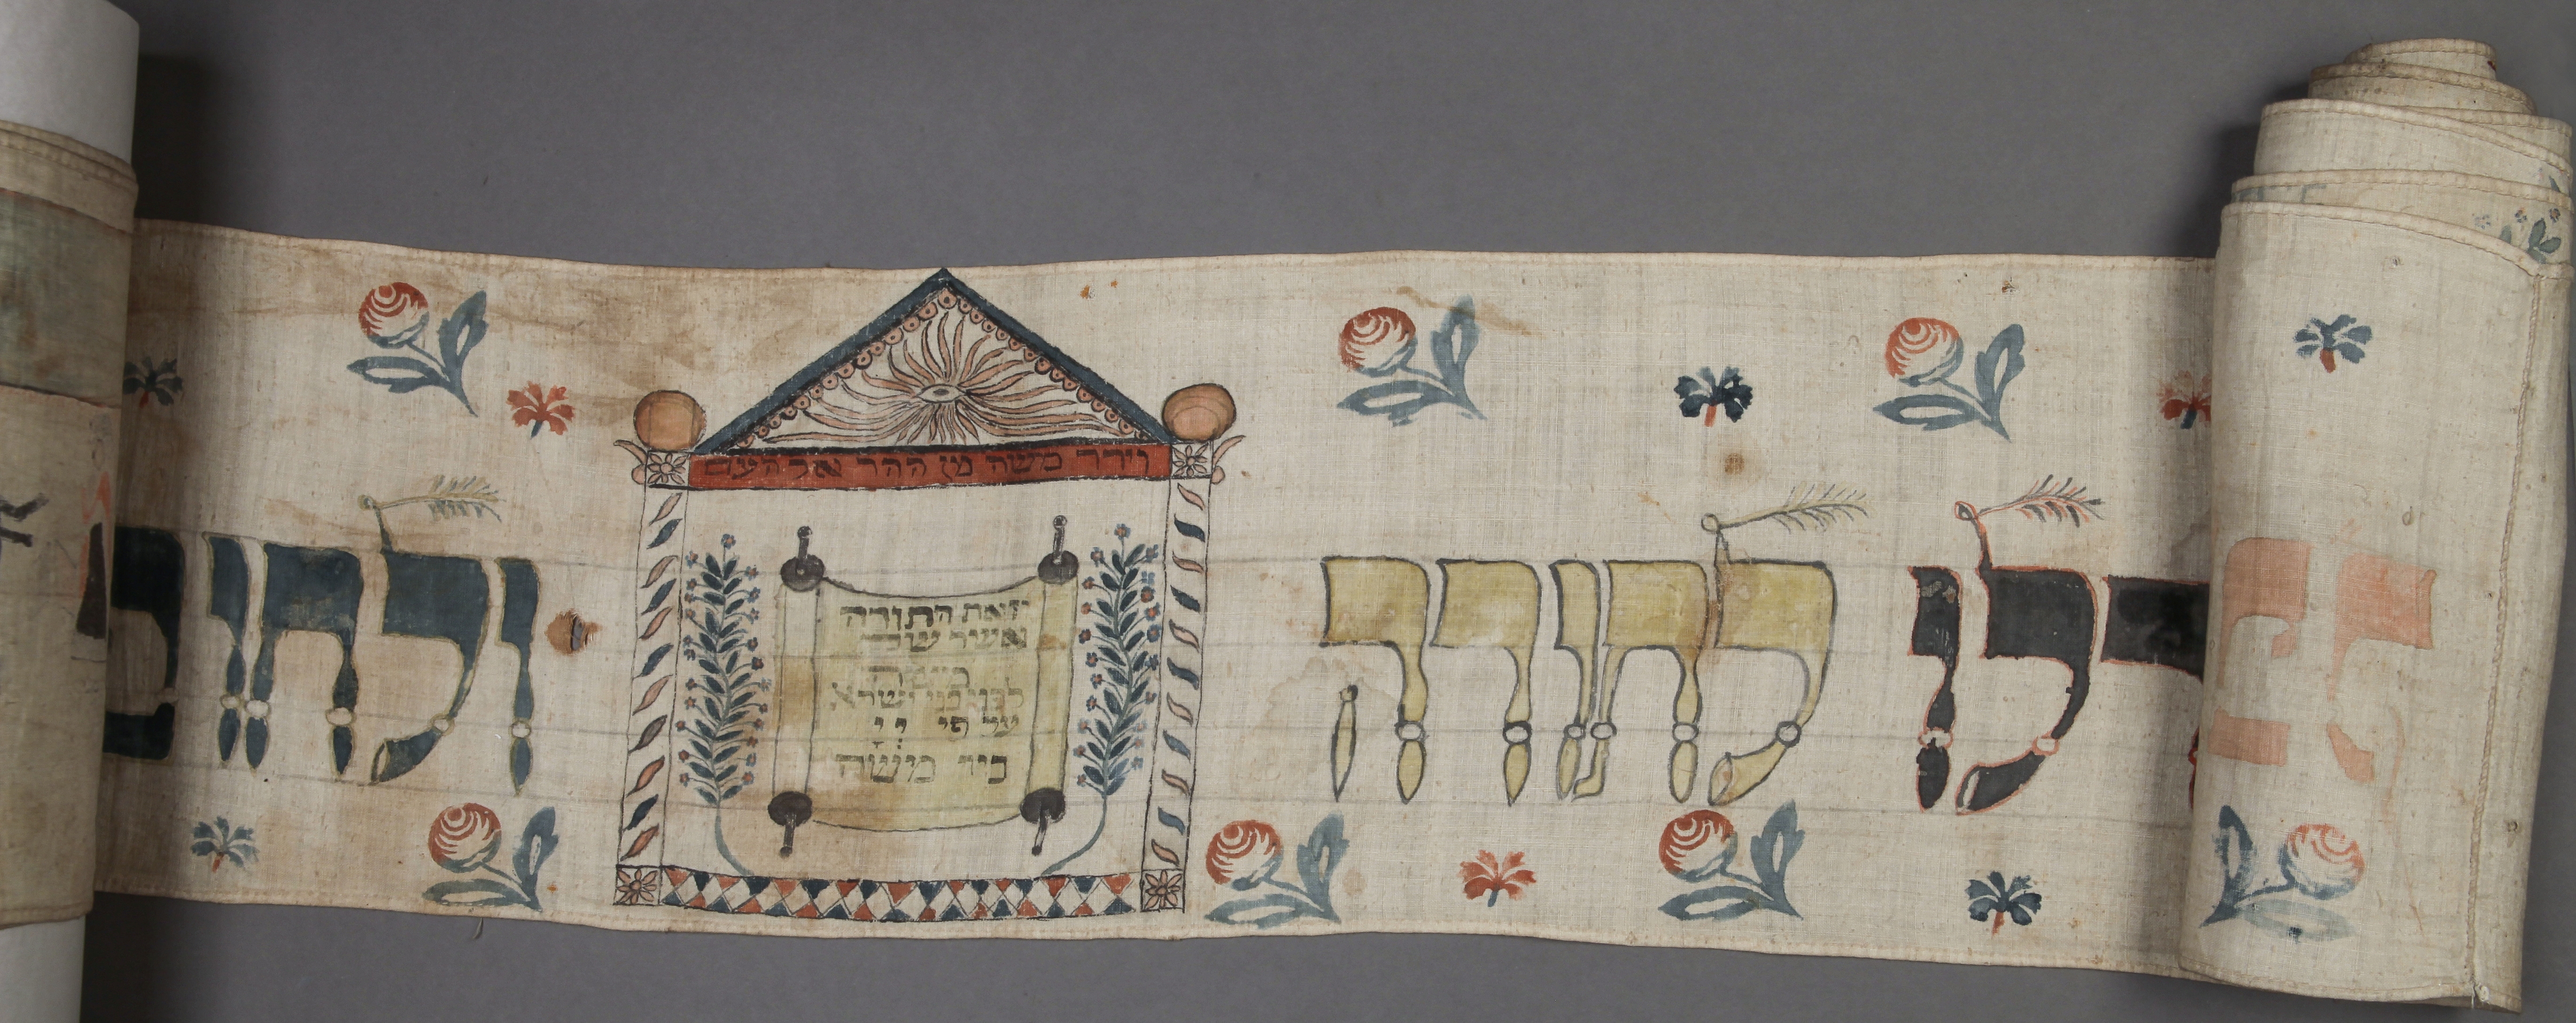 לו לתורה
וירד משה מן ההר אל העם
וזאת התורה
אשר שם
משה
לפני בני ישרא
על פי יי
ביד משה
ולחופ